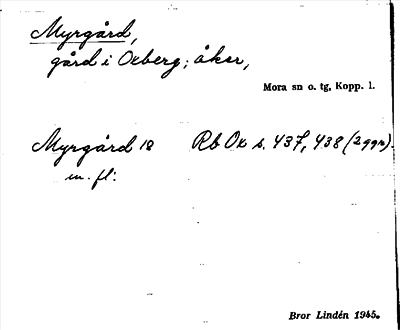 Myrgård,
gård i Oxberg; åker,
Mora sn o. tg, Kopp. l.
Myrgård 18 Rb Ox s. 437, 438 (2 ggr).
m. fl:
Bror Lindén 1945.